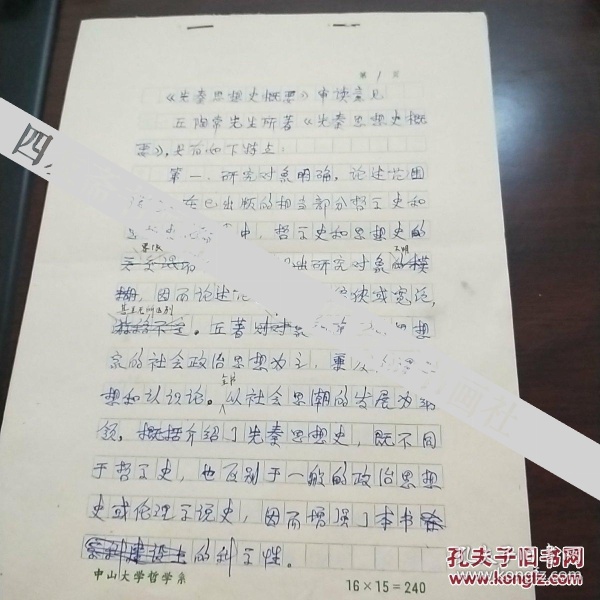 第 1 页
《先秦思想史概要》审读意见
丘陶常先生所著《先秦思想史概
要》,具有如下特点:
第一,研究对象明确,论述范围
在已出版的相当部分哲学史和
中,哲学史和思想史的
界限
出研究对象的模
不明
糊,因而论述 或宽泛,
甚至无所区别
。丘著 想
家的社会政治思想为主,兼及
想和认识论。从社会思潮的发展为纲
全书
领,概括介绍了先秦思想史,既不同
于哲学史,也区别于一般的政治思想
史或伦理学说史,因而增强了本书
的科学性。
中山大学哲学系
16×15=240
四
社
孔夫子旧书网
www.kongfz.com